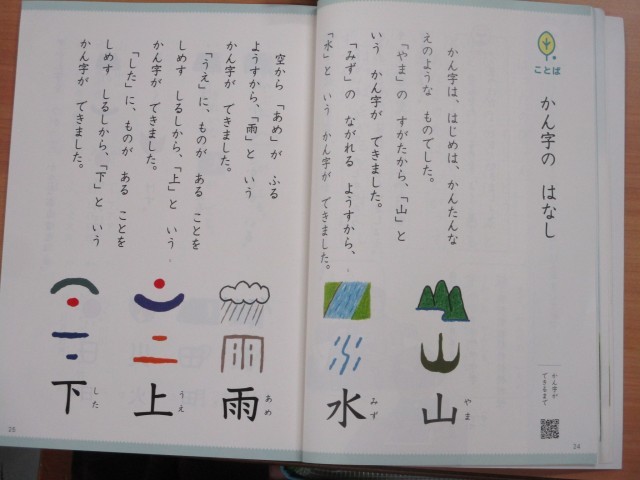 ことば
かん字の はなし
かん字は、はじめは、かんたんな
えのような ものでした。
「やま」の すがたから、「山」と
いう かん字が できました。
「みず」の ながれる ようすから、
「水」と いう かん字が できました。
かん字が
できるまで
山 やま
水 みず
34
空から 「あめ」が ふる
ようすから、「雨」と いう
かん字が できました。
「うえ」に、ものが ある ことを
しめす しるしから、「上」と いう
かん字が できました。
「した」に、ものが ある ことを
しめす しるしから、「下」と いう
かん字が できました。
雨 あめ
上 うえ
下 した
35